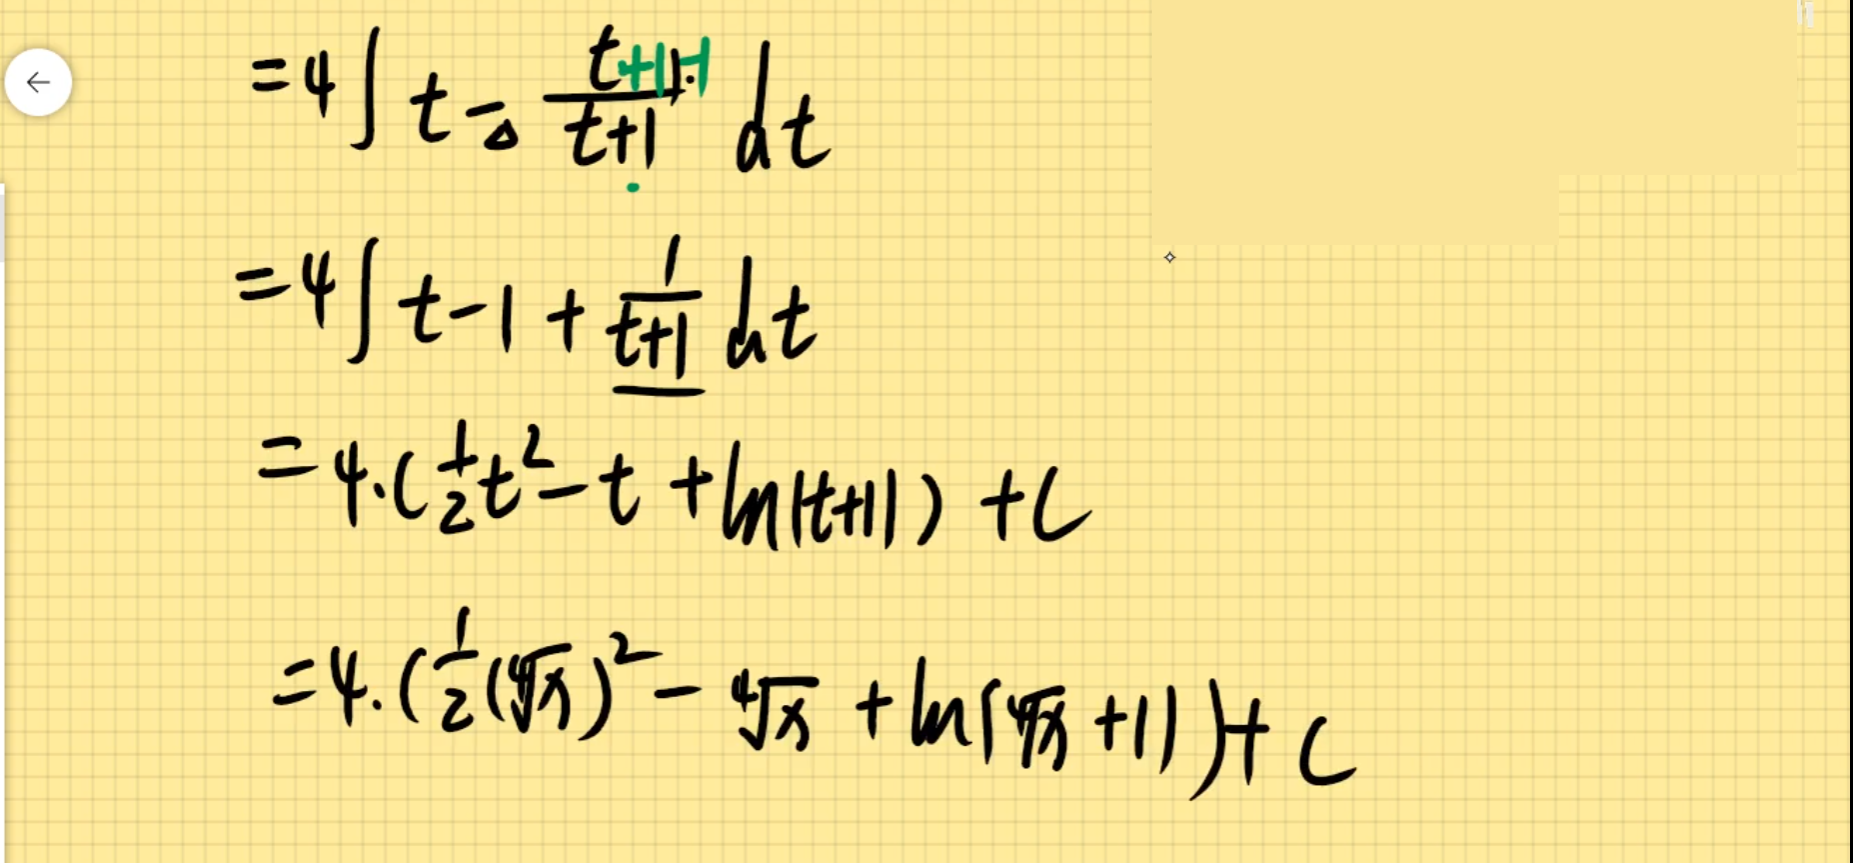 =4∫ t - (t+1-1)/(t+1) dt
=4∫ t-1 + 1/(t+1) dt
=4·(1/2 t² - t + ln|t+1|) + C
=4·(1/2 (⁴√x)² - ⁴√x + ln|⁴√x +1|) + C